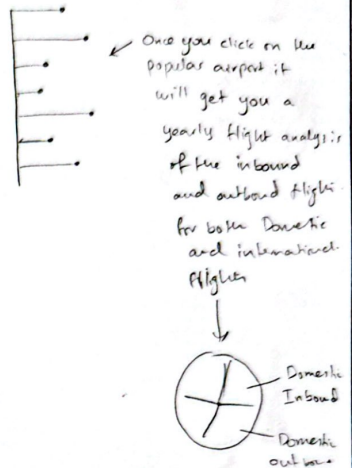 Once you click on the
popular airport it
will get you a
yearly flight analysis
of the inbound
and outbound flight
for both Domestic
and international
flights
Domestic
Inbound
Domestic
outboun